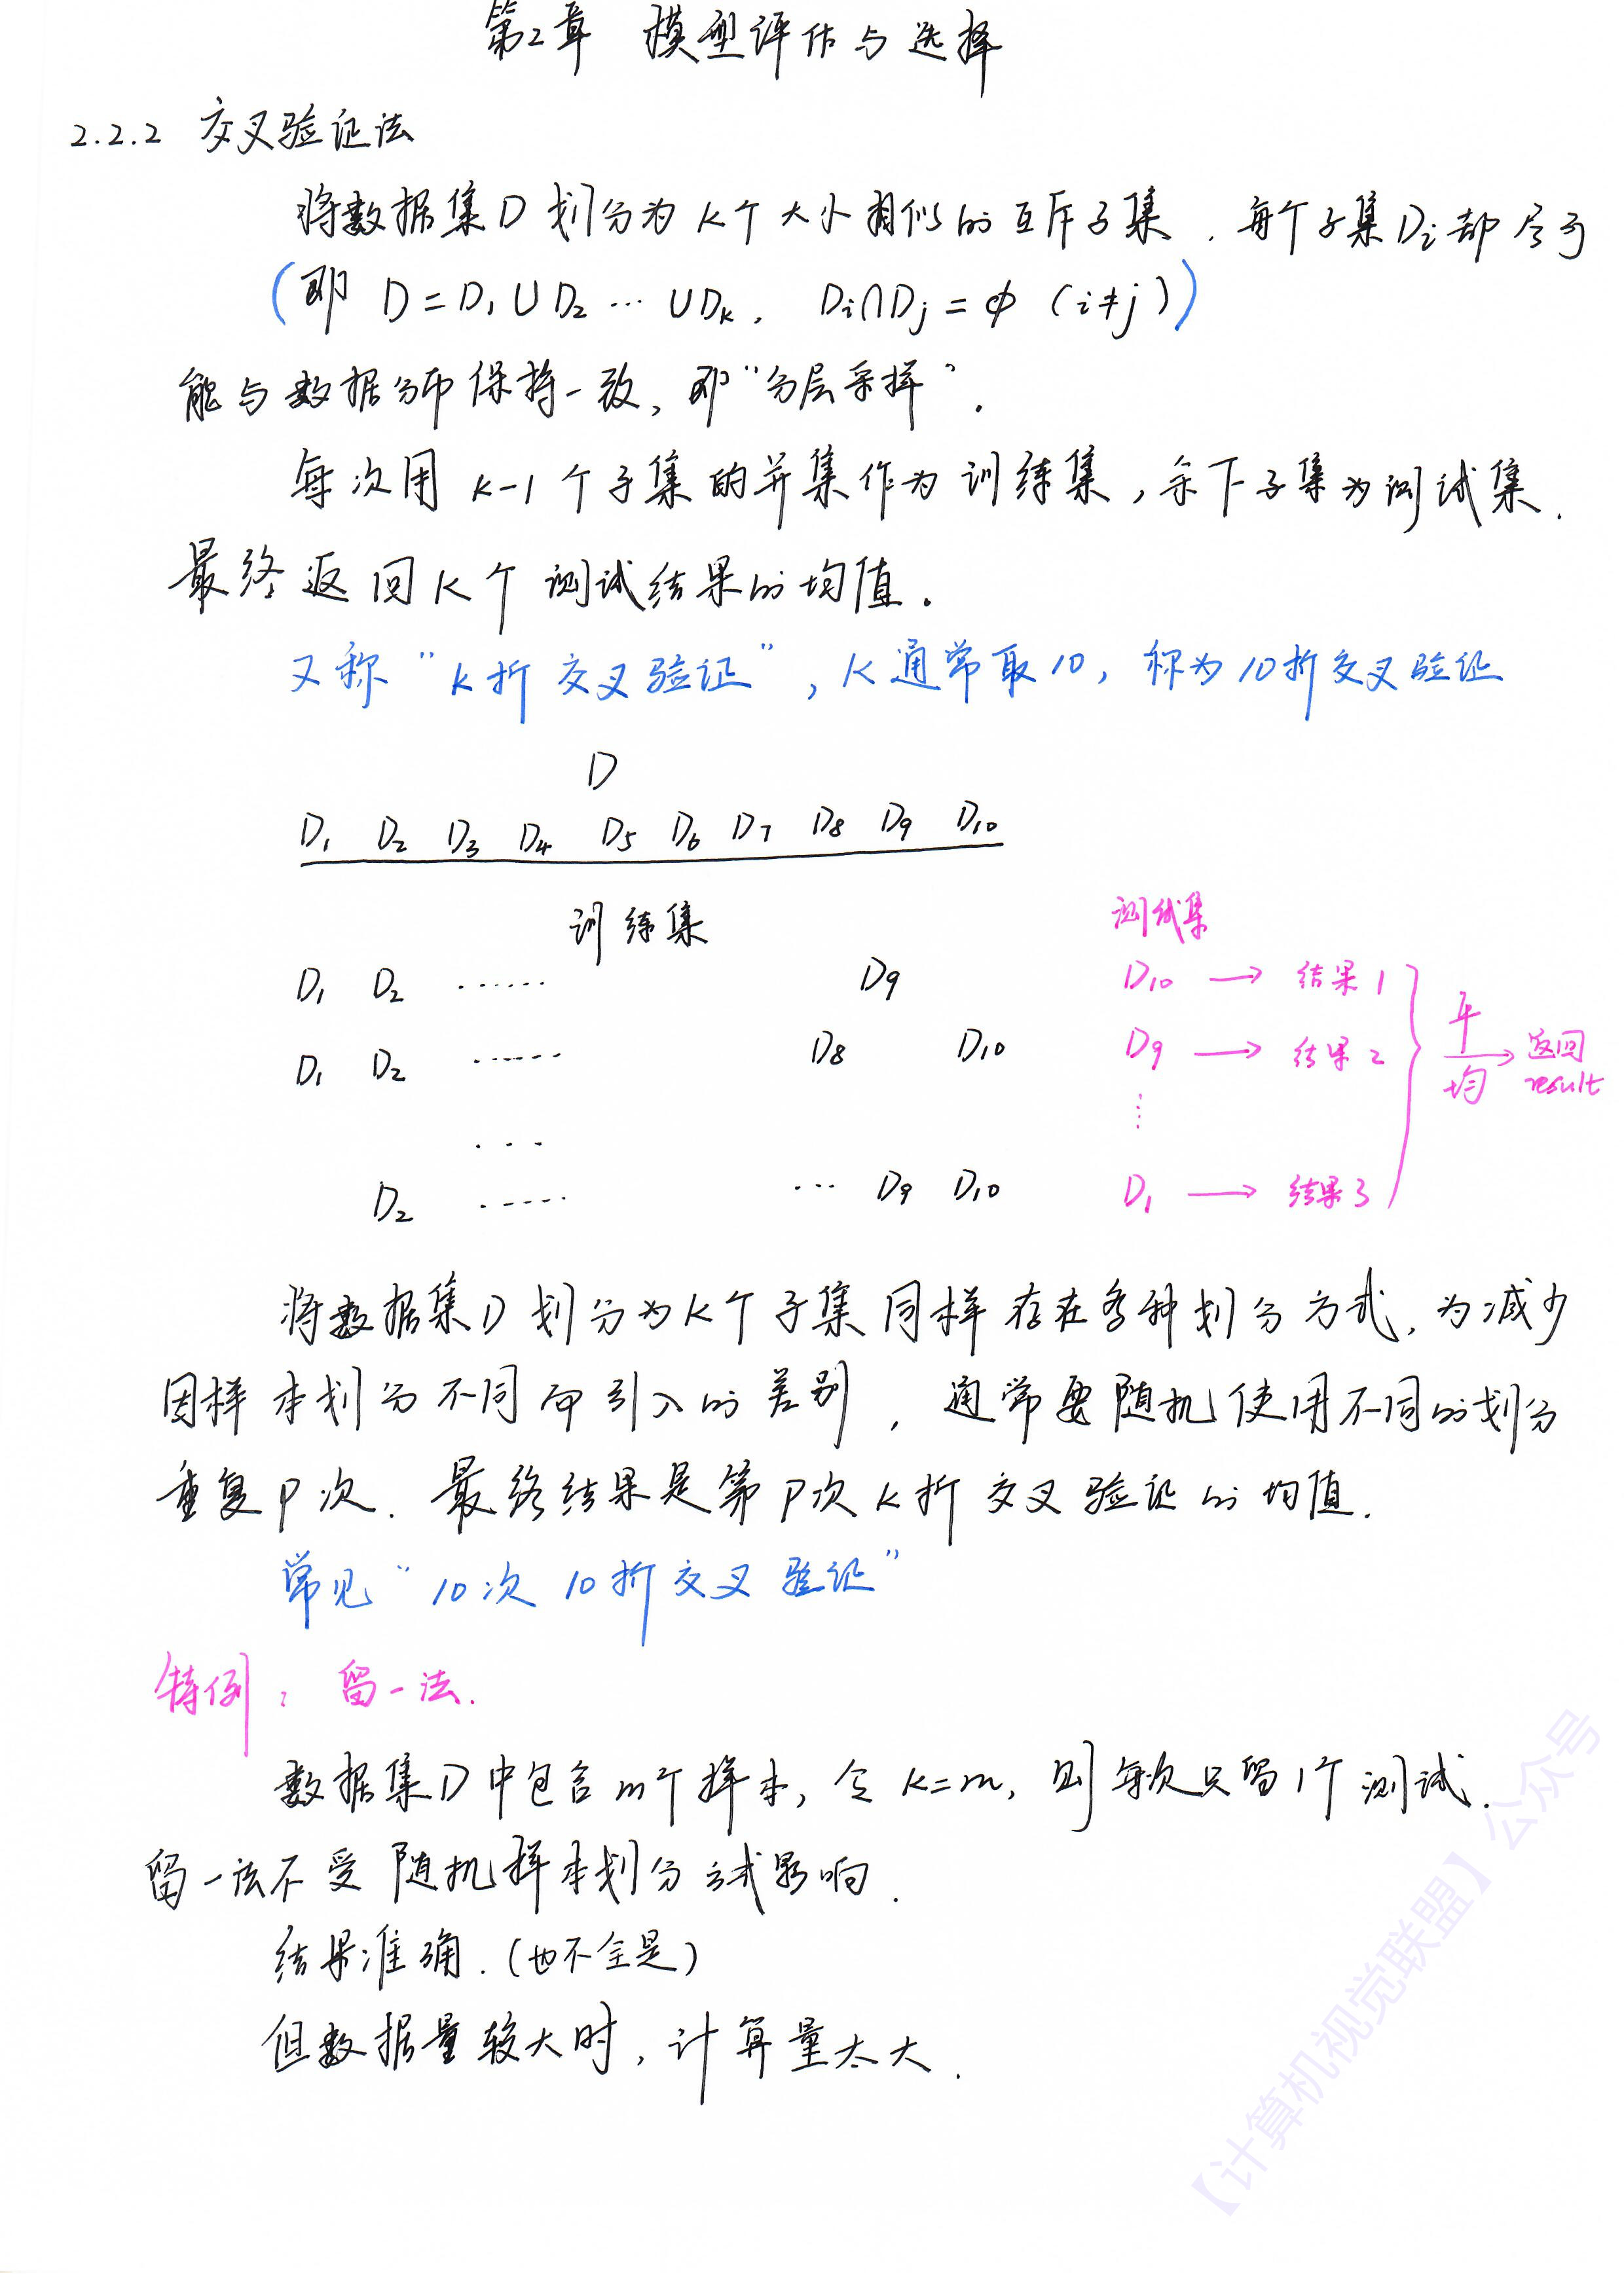 第2章 模型评估与选择
2.2.2 交叉验证法
将数据集D划分为K个大小相似的互斥子集.每个子集Di都尽可
(即 D=D1∪D2…∪Dk, Di∩Dj=ϕ (i≠j))
能与数据分布保持一致,即“分层采样”.
每次用 k-1 个子集的并集作为训练集,余下子集为测试集.
最终返回K个测试结果的均值.
又称“k折交叉验证”,K通常取10,称为10折交叉验证
D
D1 D2 D3 D4 D5 D6 D7 D8 D9 D10
训练集 测试集
D1 D2 …… D9 D10 → 结果1
D1 D2 …… D8 D10 D9 → 结果2
平均 → 返回 result
… ⋮
D2 …… … D9 D10 D1 → 结果3
将数据集D划分为K个子集同样存在多种划分方式,为减少
因样本划分不同而引入的差别,通常要随机使用不同的划分
重复P次.最终结果是第P次k折交叉验证的均值.
常见“10次10折交叉验证”
特例:留一法.
数据集D中包含m个样本,令 K=m,则每次只留1个测试.
留一法不受随机样本划分方式影响.
结果准确.(也不全是)
但数据量较大时,计算量太大.
【计算机视觉联盟】公众号